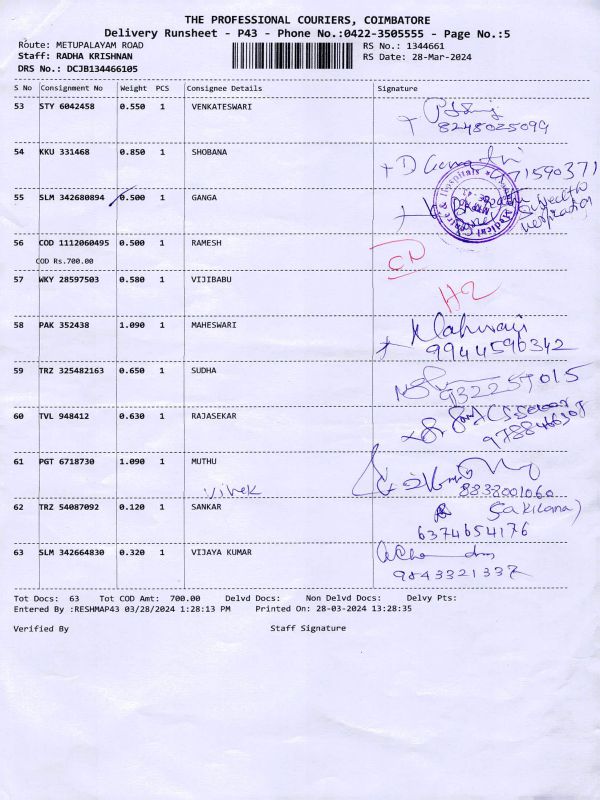 THE PROFESSIONAL COURIERS, COIMBATORE
Delivery Runsheet - P43 - Phone No.:0422-3505555 - Page No.:5
Route: METUPALAYAM ROAD RS No.: 1344661
Staff: RADHA KRISHNAN RS Date: 28-Mar-2024
DRS No.: DCJB134466105
S No Consignment No Weight PCS Consignee Details Signature
53 STY 6042458 0.550 1 VENKATESWARI
8248025099
54 KKU 331468 0.850 1 SHOBANA
55 SLM 342680894 0.500 1 GANGA
56 COD 1112060495 0.500 1 RAMESH
COD Rs.700.00
57 WKY 28597503 0.580 1 VIJIBABU
H2
58 PAK 352438 1.090 1 MAHESWARI
9944590342
59 TRZ 325482163 0.650 1 SUDHA
60 TVL 948412 0.630 1 RAJASEKAR
61 PGT 6718730 1.090 1 MUTHU
Vivek 8838001060
62 TRZ 54087092 0.120 1 SANKAR
6374654176
63 SLM 342664830 0.320 1 VIJAYA KUMAR
9843321337
Tot Docs: 63 Tot COD Amt: 700.00 Delvd Docs: Non Delvd Docs: Delvy Pts:
Entered By :RESHMAP43 03/28/2024 1:28:13 PM Printed On: 28-03-2024 13:28:35
Verified By Staff Signature